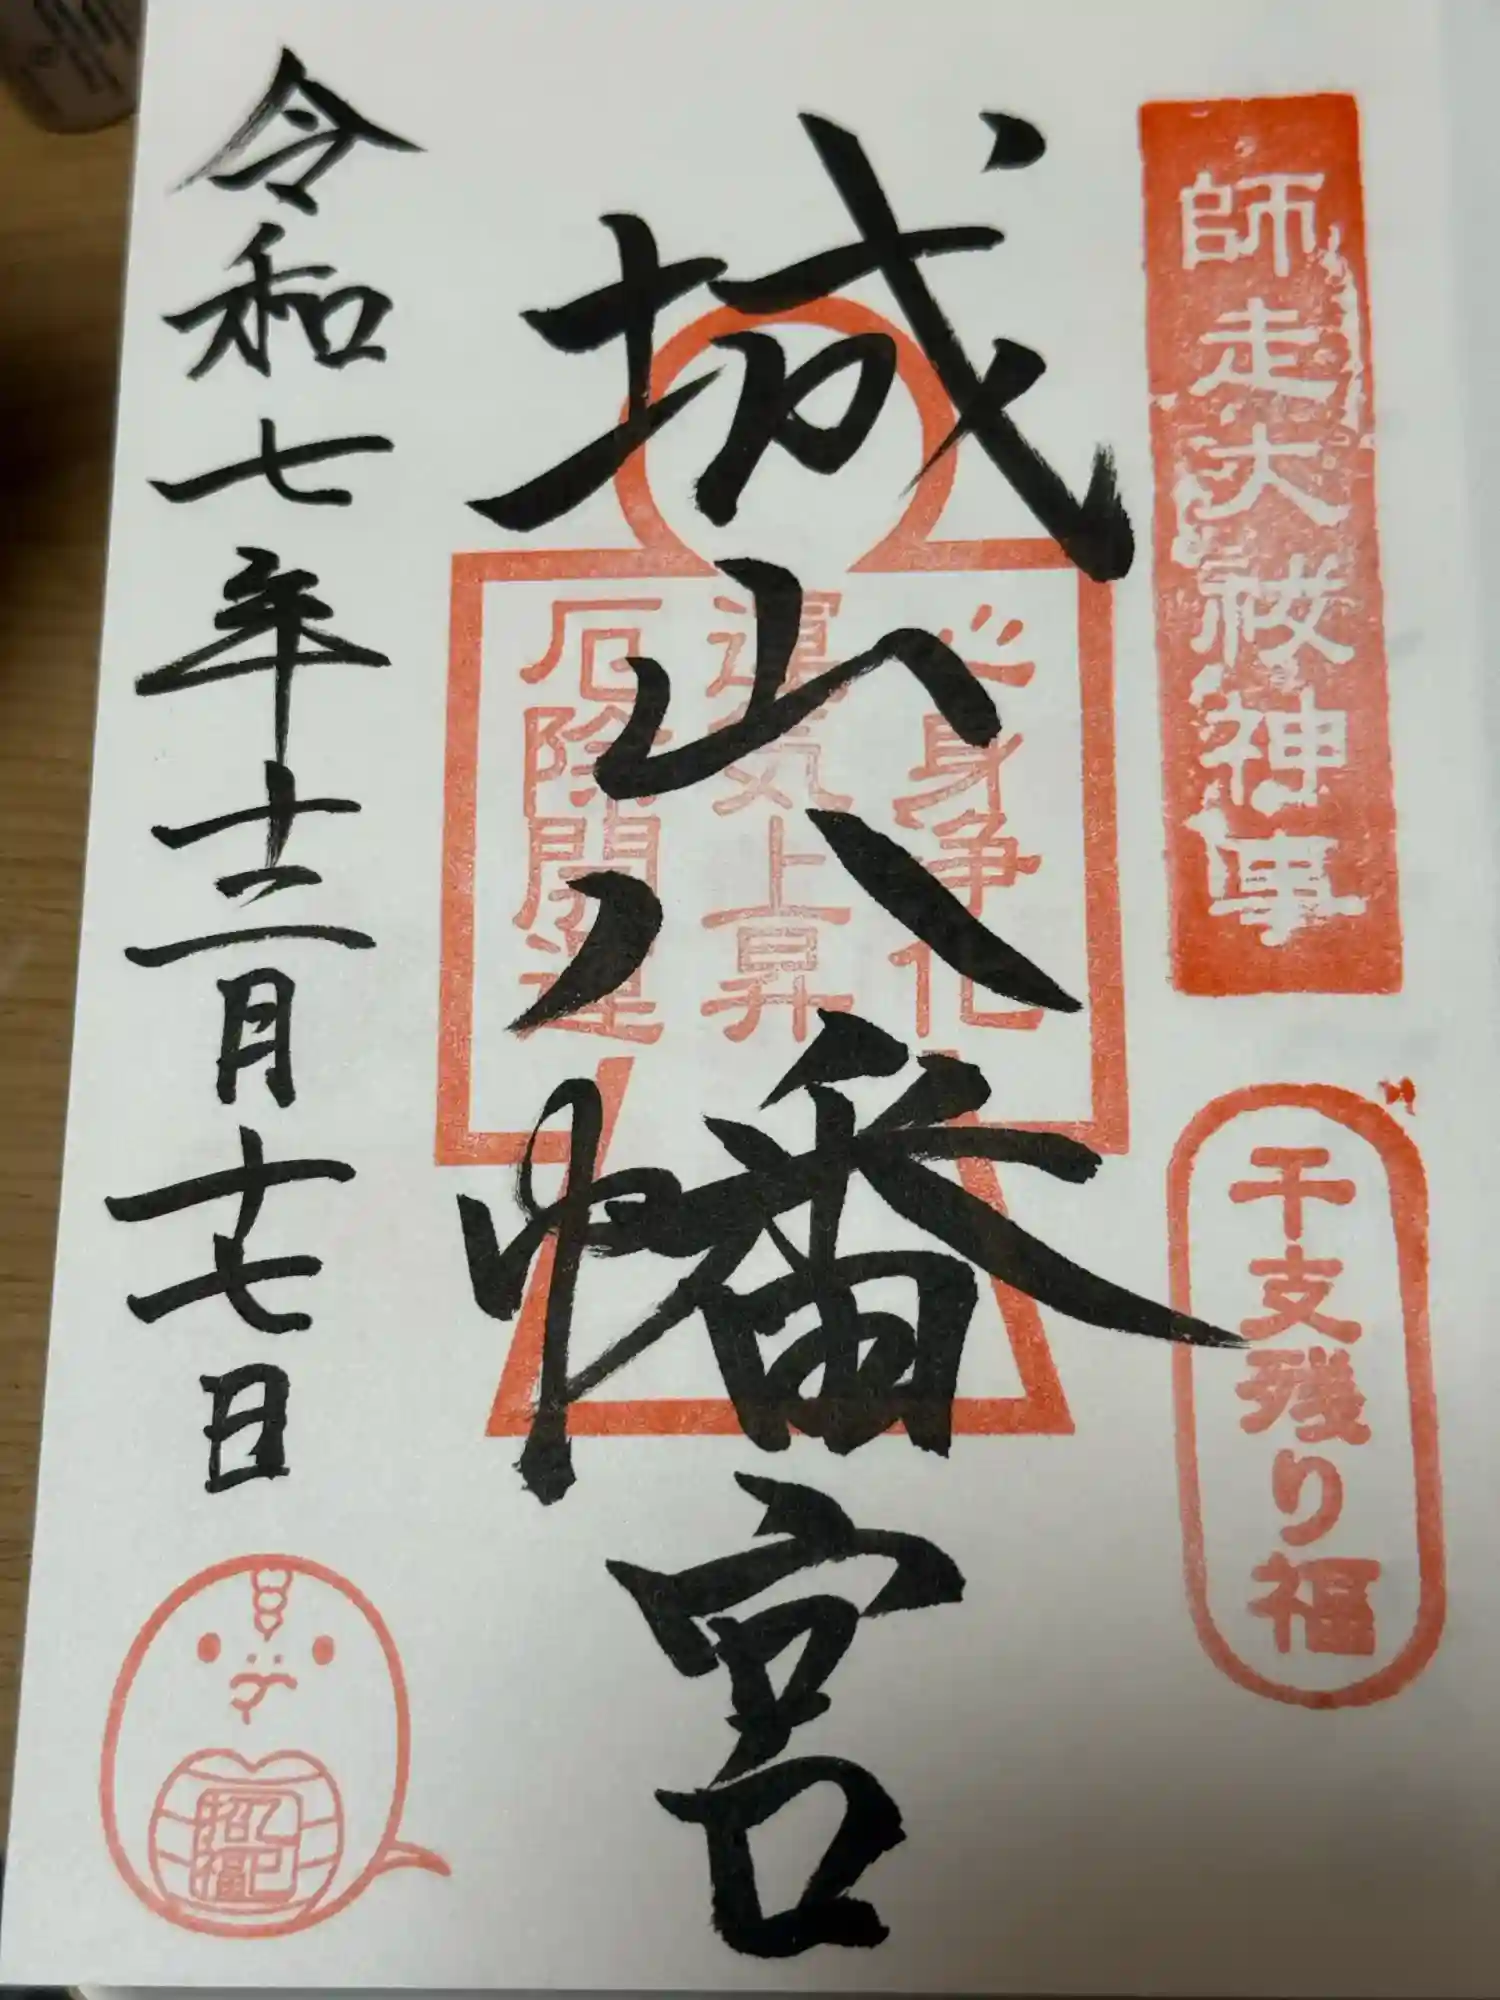 師走大祓神事
干支残り福
城山八幡宮
心身浄化
運気上昇
厄除開運
令和七年十二月十七日
乙巳
招福